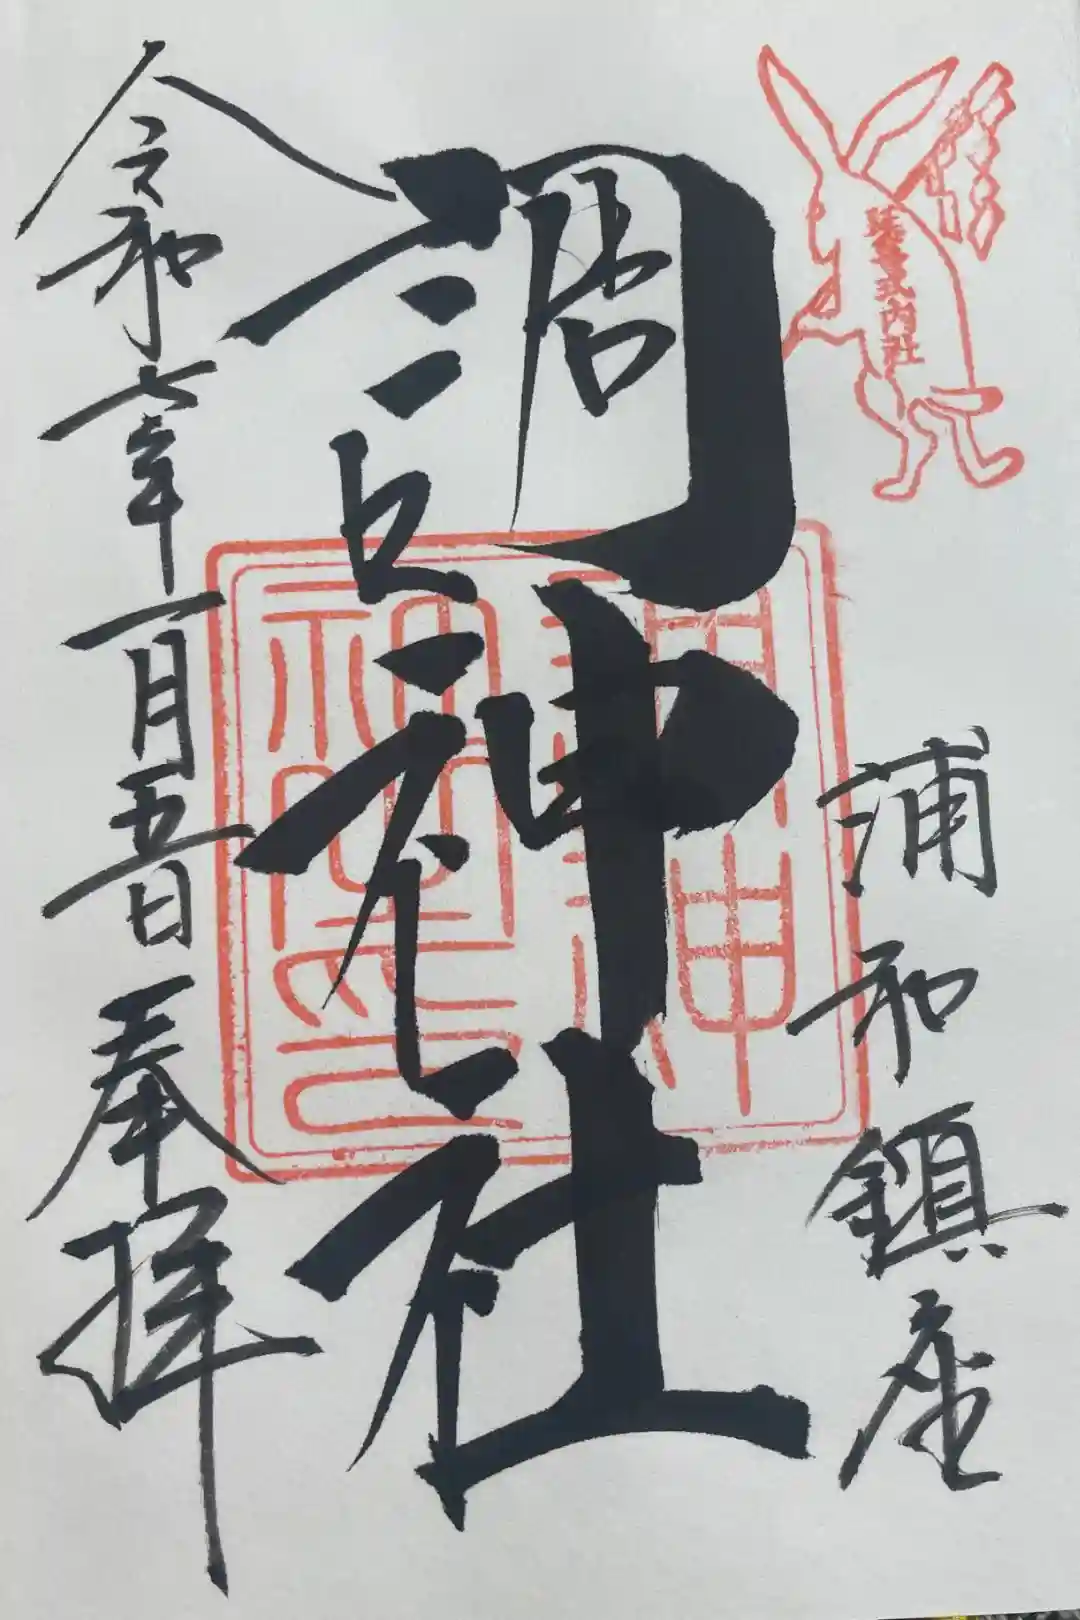 延喜式内社
浦和鎮座
調神社
調神社印
令和七年一月五日奉拝